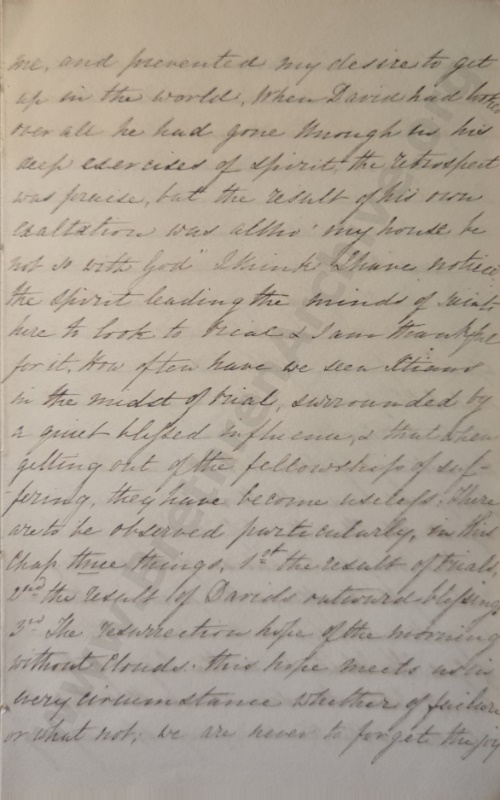 me, and prevented my desire to get
up in the world, When David had looked
over all he had gone through in his
deep exercises of spirit, the retrospect
was praise, but the result of his own
exaltation was altho' my house be
not so with God" I think I have noticed
the spirit leading the minds of saints
here to look to trial & I am thankful
for it, How often have we seen Xtians
in the midst of trial, surrounded by
a quiet blessed influence, & that when
getting out of the fellowship of suf-
fering, they have become useless. There
are to be observed particularly, in this
Chap three things, 1st the result of trials
2nd the result of Davids outward blessings
3rd The resurrection hope of the morning
without clouds. this hope meets us in
every circumstance whether of failure
or what not; we are never to forget the joy